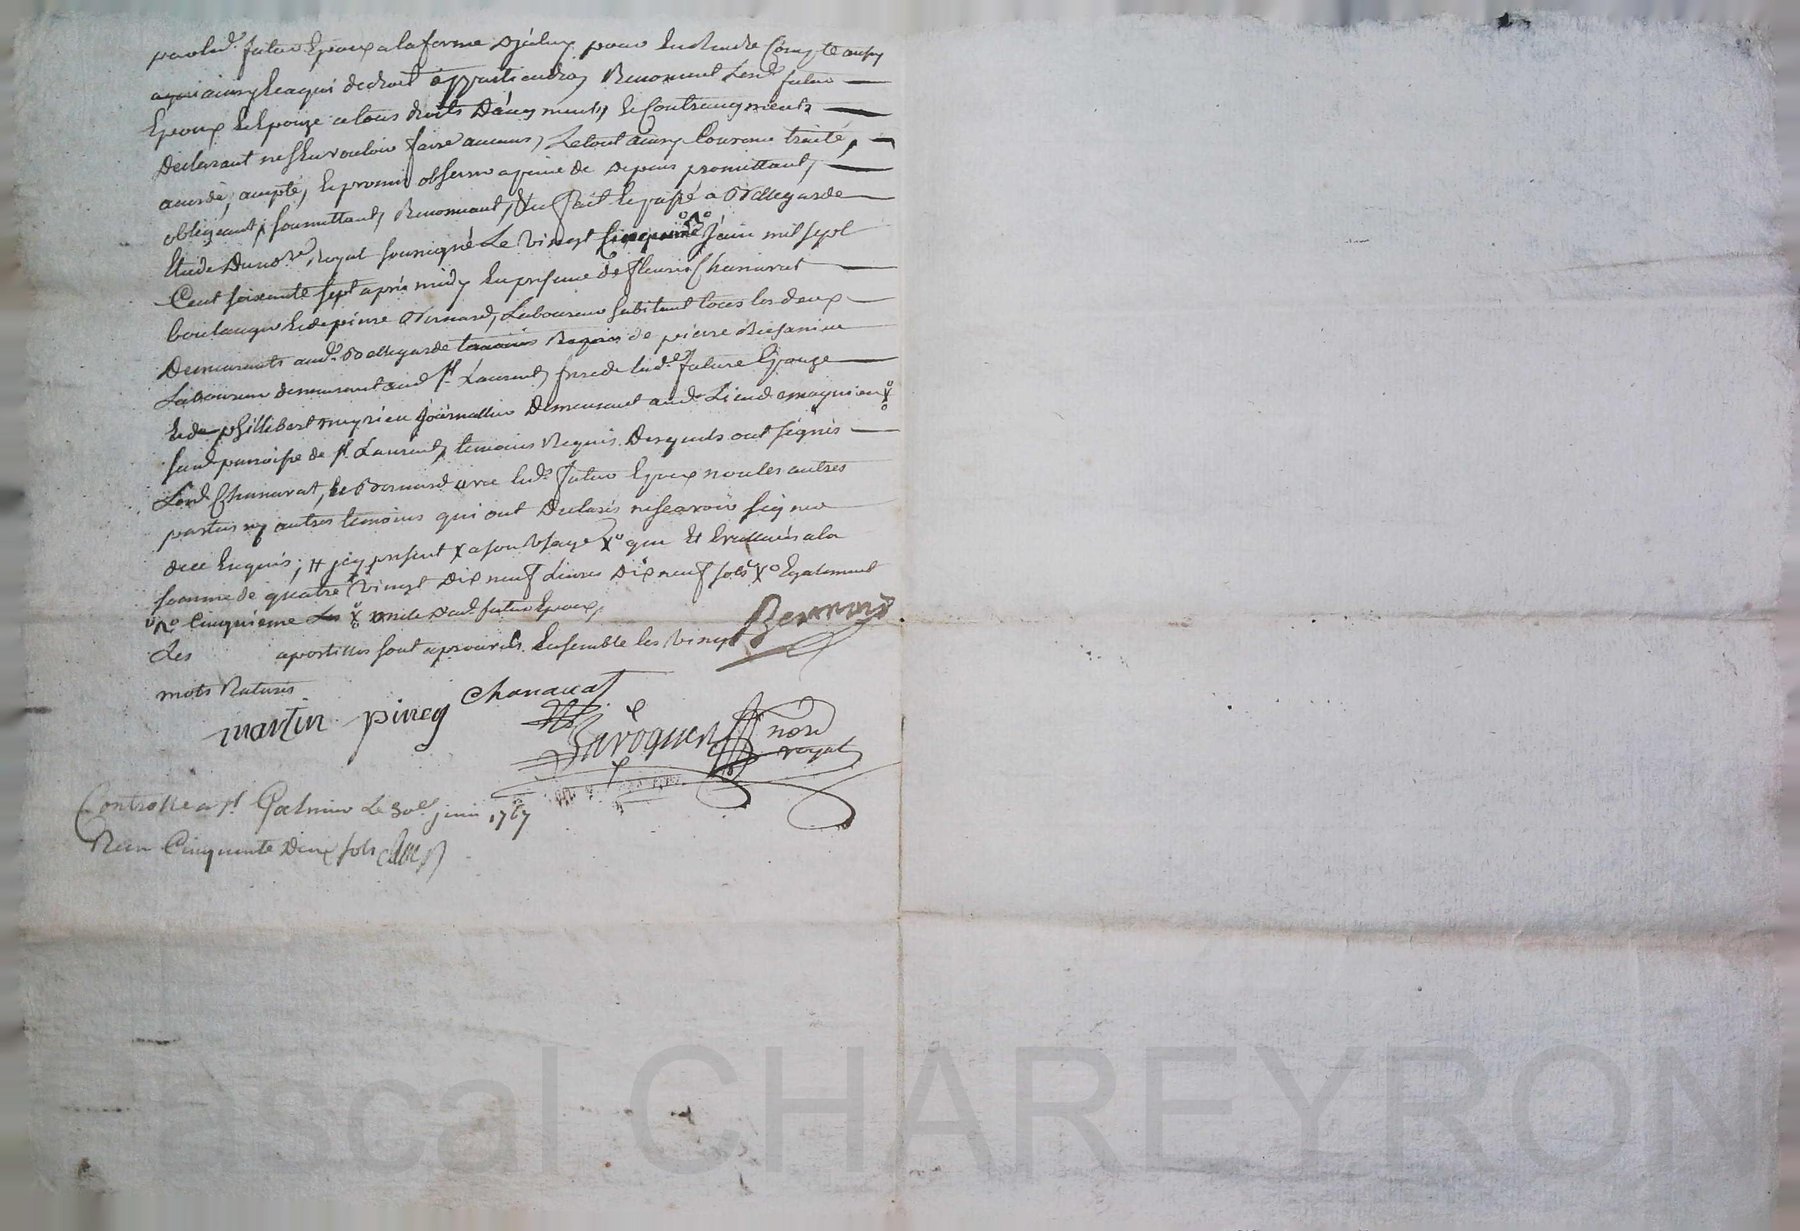 par led. futur Epoux a la forme pour en Rendre Compte ausy
ainsy Et a qui de droit appartiendra, Renonceant Lesd. futur
Epoux Et Epouze a tous droits D'augments, Et Contraugments
Declarant ne s'en vouloir faire aucuns, Le tout ainsy Convenu traité,
acordé, accepté, Et promis observer a peine de Depens promettants,
obligeants, soumettants, Renonceants, &c fait Et passé a Bellegarde
Etude Du nore. Royal soussigné Le vingt juin mil sept
Cent soixante sept après midy En presence de fleury Chanavat
boulanger Et de pierre Bernard, Laboureur habitant tous les deux
Demeurants aud. Bellegarde temoins Requis de pierre
Laboureur demeurant aud. St. Laurent, frere de lad. future Epouze
Et de phillibert journallier Demeurant au
susd. parroisse de St. Laurent, temoins Requis Desquels ont signés
Lesd. Chanavat, Et Bernard avec led. futur Epoux non les autres
parties ny autres temoins qui ont Declarés ne scavoir signer
de ce Enquis; # jcy present X a son Usage Xo que Et Evalués a la
somme de quatre Vingt Dix neuf Livres Dix neuf sols Xo Egalement
Cinquième Les oncle Dud. futur Epoux,
Les apostilles sont aprouvés Ensemble les vingt
mots Raturés
Bernard
martin pirey Chanavat
nore
royal
Controllé a St. Galmier Le 30e. juin 1767
Recu Cinquante Deux sols
ascal CHAREYRON